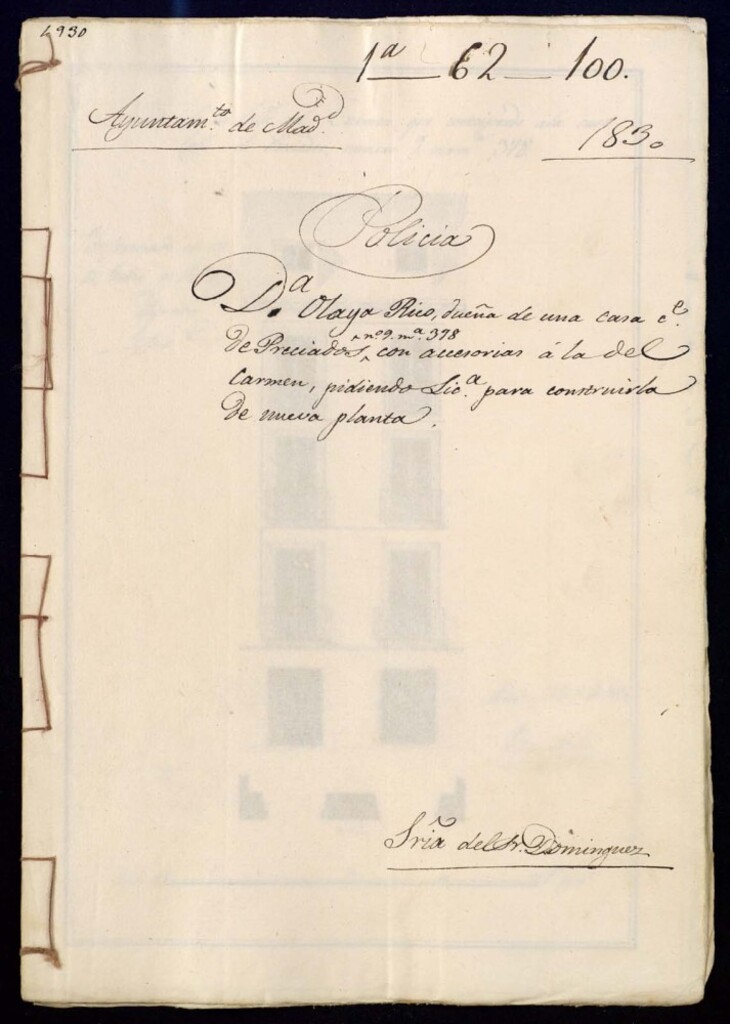 4930
1ª — 62 — 100.
Ayuntam.to de Mad.d
1830
Policia
D.ª Olaya Rico, dueña de una casa c.e
de Preciados, nº 9. mª 378 con accesorias á la del
Carmen, pidiendo Lic.ª para construirla
de nueva planta.
Sria del Sr. Dominguez